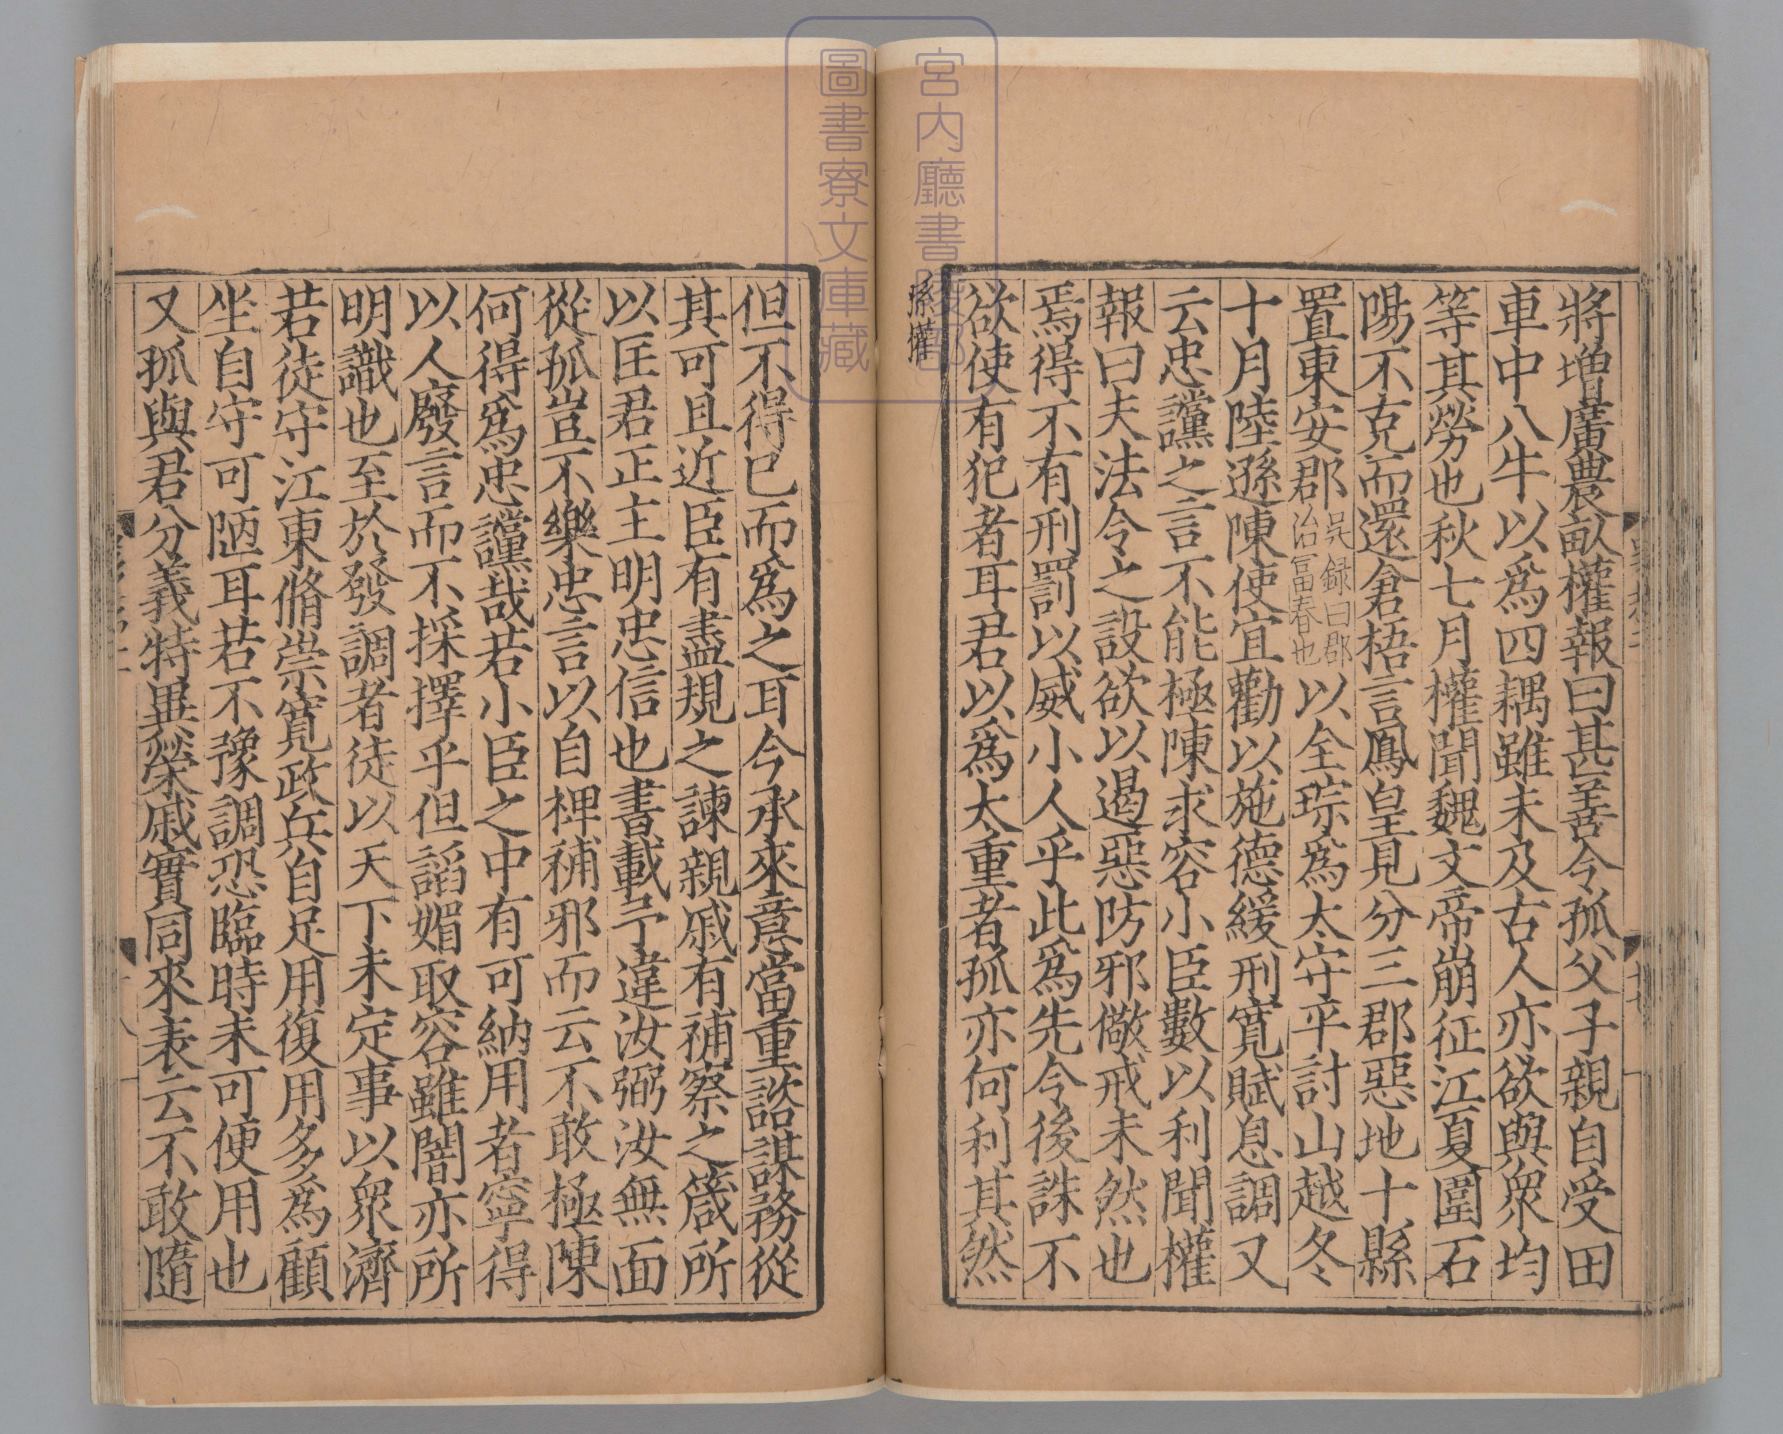 將增廣農畝權報曰甚善今孤父子親自受田
車中八牛以爲四耦雖未及古人亦欲與衆均
等其勞也秋七月權聞魏文帝崩征江夏圍石
陽不克而還倉梧言鳳皇見分三郡惡地十縣
置東安郡吳録曰郡治富春也以全琮爲太守平討山越冬
十月陸遜陳便宜勸以施德緩刑寛賦息調又
云忠讜之言不能極陳求容小臣數以利聞權
報曰夫法令之設欲以遏惡防邪儆戒未然也
焉得不有刑罰以威小人乎此爲先令後誅不
欲使有犯者耳君以爲太重者孤亦何利其然
孫權
宮内廳書陵部
圖書寮文庫藏
但不得已而爲之耳今承來意當重諮謀務從
其可且近臣有盡規之諫親戚有補察之箴所
以匡君正主明忠信也書載予違汝弼汝無面
從孤豈不樂忠言以自裨補邪而云不敢極陳
何得爲忠讜哉若小臣之中有可納用者寧得
以人廢言而不採擇乎但諂媚取容雖闇亦所
明識也至於發調者徒以天下未定事以衆濟
若徒守江東脩崇寛政兵自足用復用多爲顧
坐自守可陋耳若不豫調恐臨時未可便用也
又孤與君分義特異榮戚實同來表云不敢隨